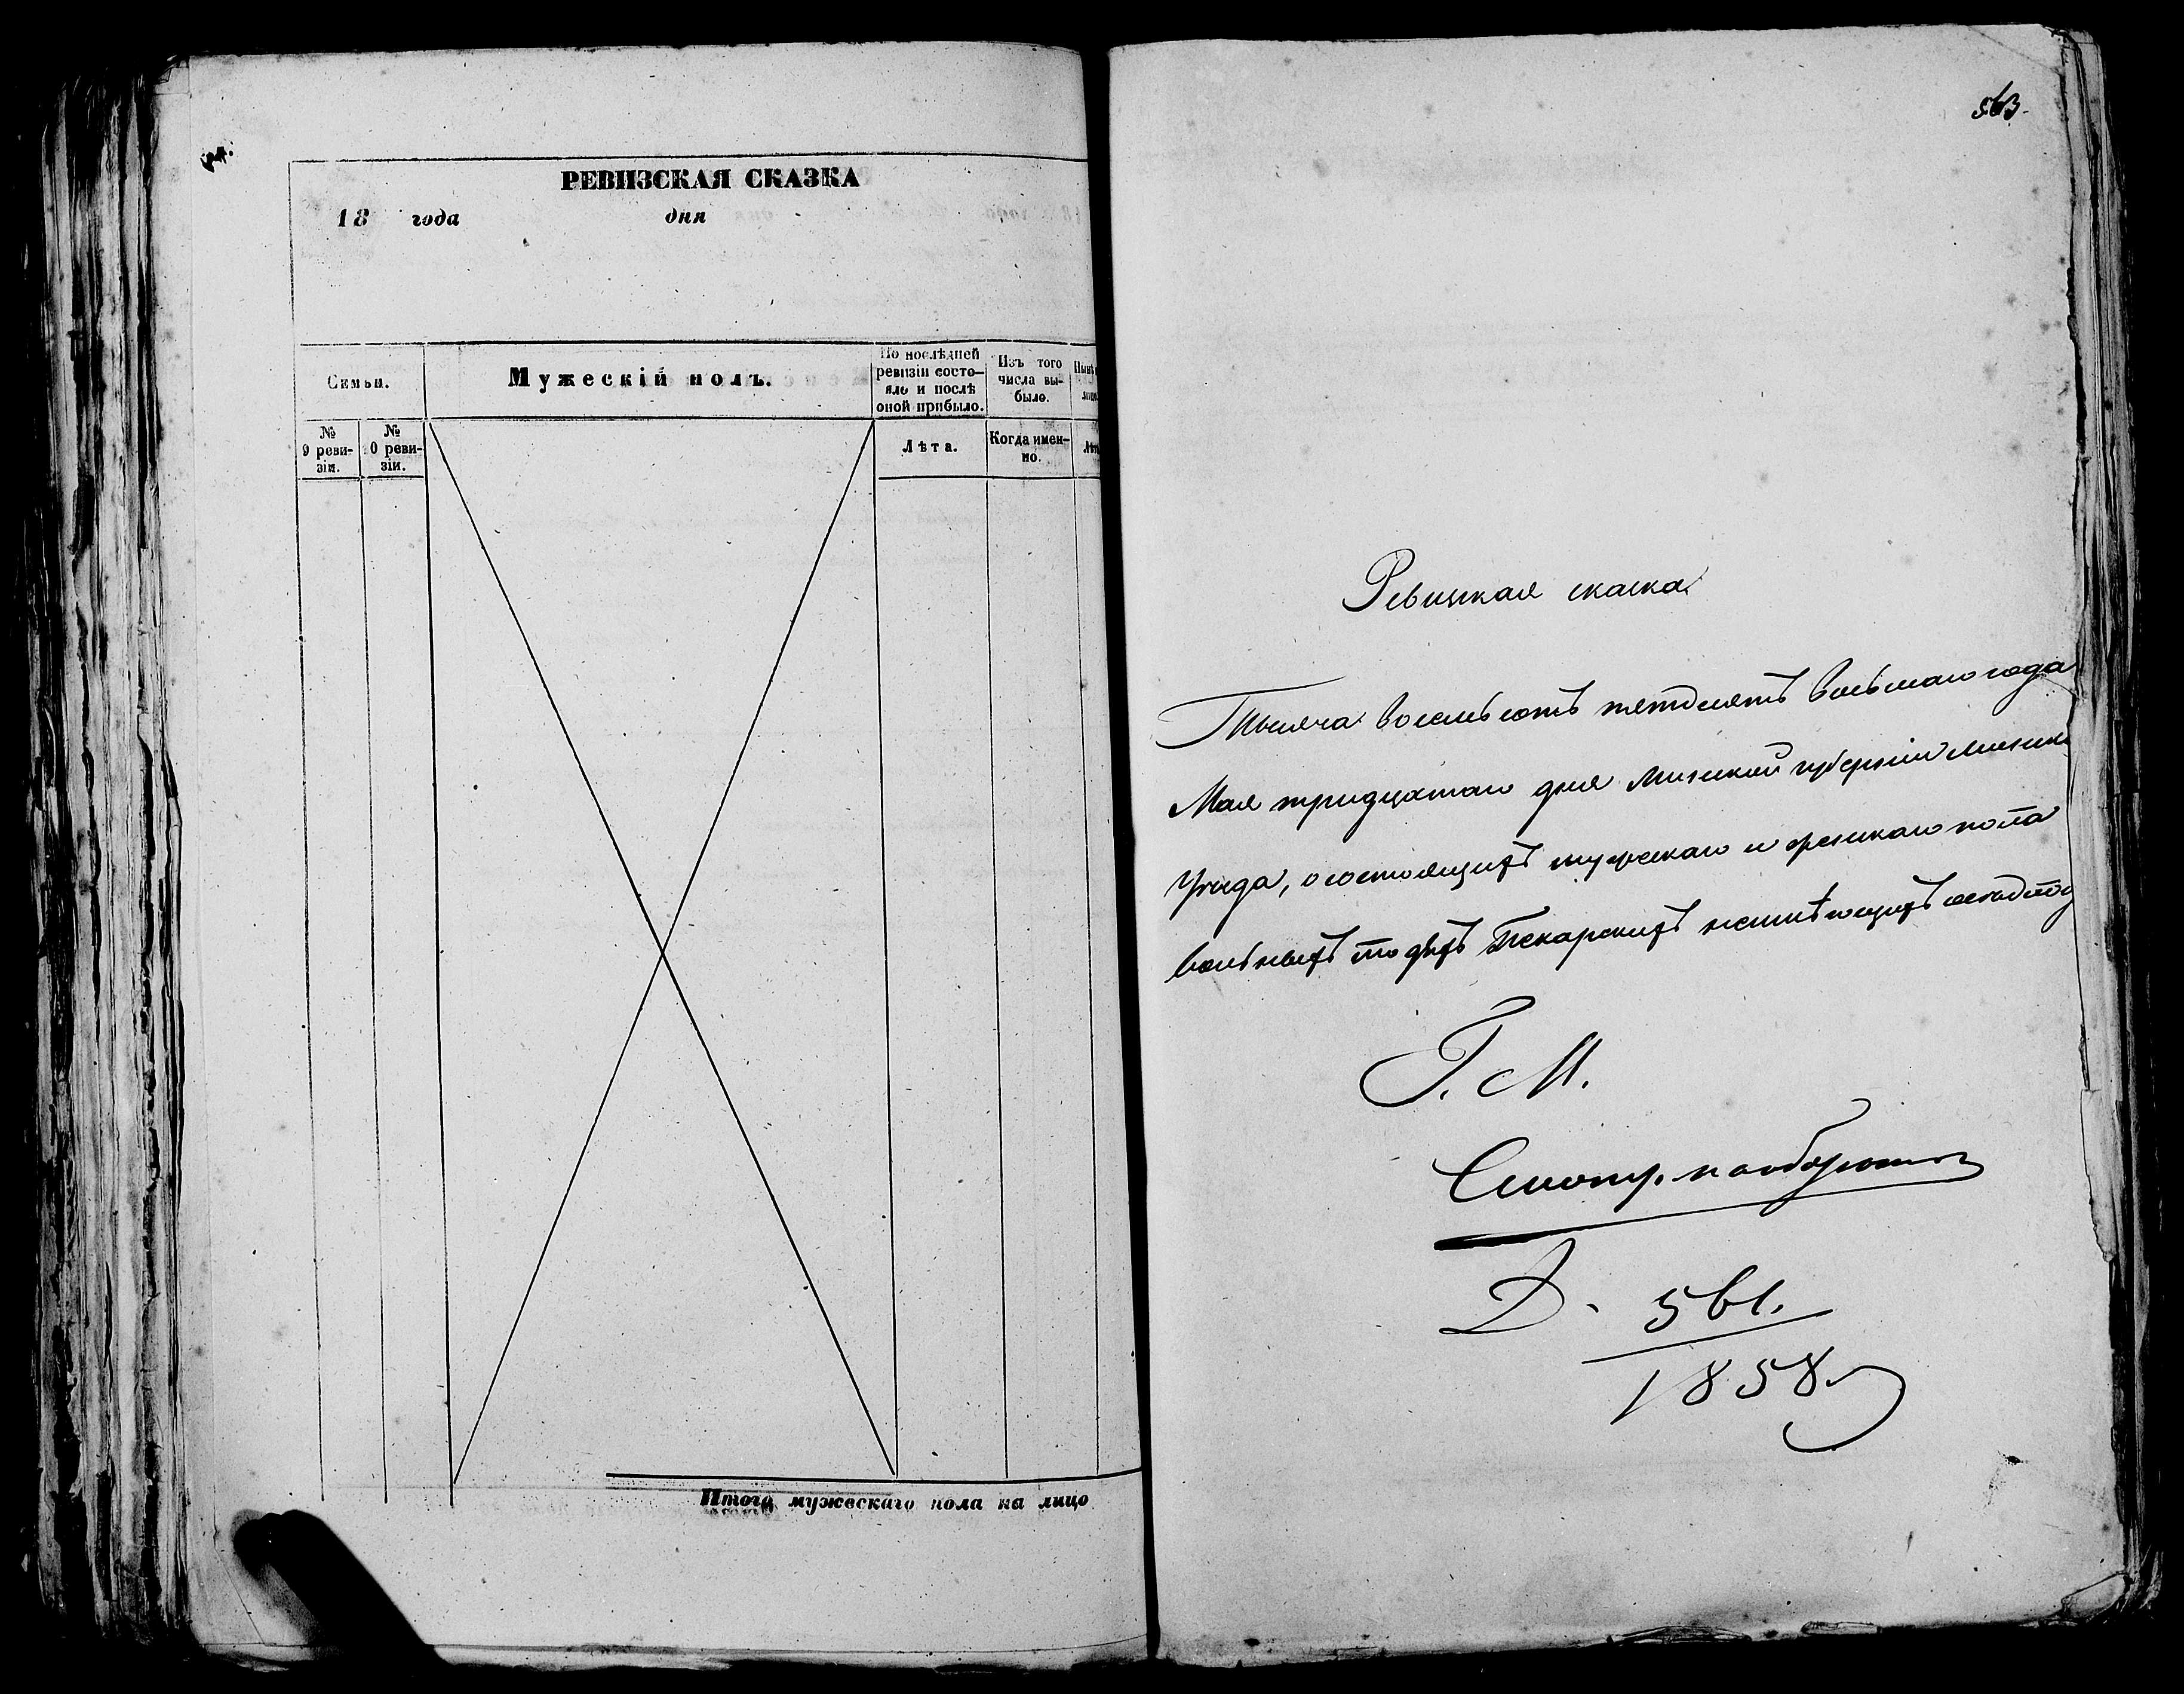 РЕВИЗСКАЯ СКАЗКА
18 года дня
Семьи.
Мужескій полъ.
По послѣдней ревизіи состо-
яло и послѣ
оной прибыло.
Изъ того
числа вы-
было.
№
9 реви-
зіи.
№
10 реви-
зіи.
Лѣта.
Когда имен-
но.
Итого мужескаго пола на лицо
563.
Ревизкая скаска
Тысяча восемьсотъ пятдесятъ восьмаго года
Мая тридцатаго дня Минской губерніи Минск
Уезда, о состоящихъ мужескаго и женскаго пола
вольныхъ людяхъ Пекарскихъ неимѣющихъ осед
Г. М.
Смотр. на обороте
Д. 561.
1858